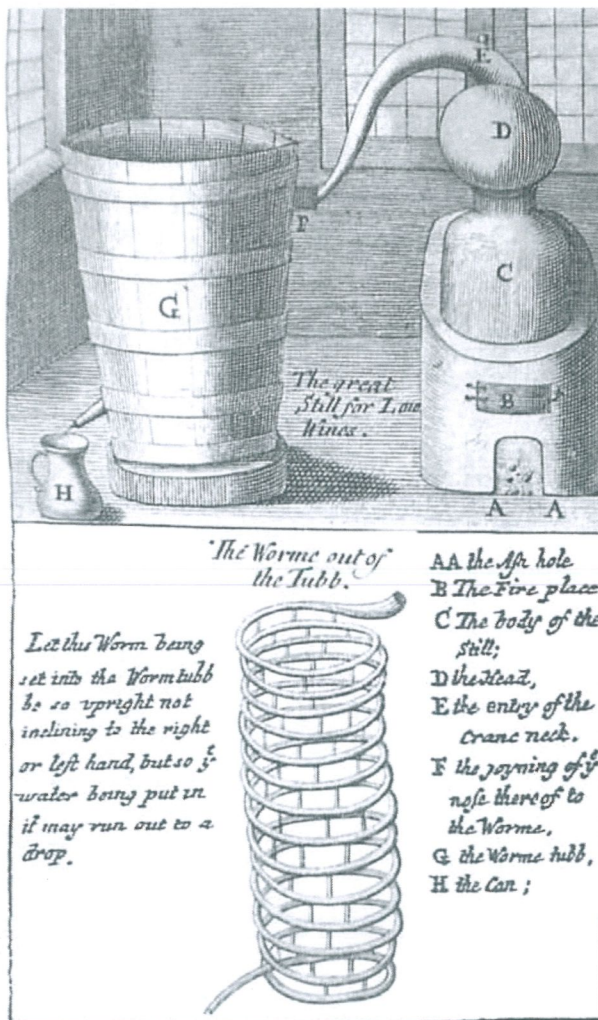 E
D
F
C
G
The great
Still for Low
Wines.
B
H
A A
The Worme out of
the Tubb.
Let this Worm being
set into the Worm tubb
be so upright not
inclining to the right
or left hand, but so yͤ
water being put in
it may run out to a
drop.
AA the Ash hole
B The Fire place
C The body of the
Still;
D the Head,
E the entry of the
Crane neck.
F the joyning of yͤ
nose there of to
the Worme,
G the Worme tubb,
H the Can;